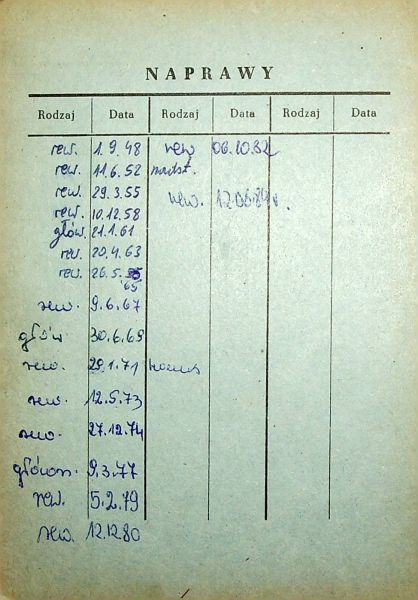 NAPRAWY
Rodzaj Data Rodzaj Data Rodzaj Data
rew. 1.9.48 rew 06.10.82
rew. 11.6.52
rew. 29.3.55 rew. 12.06.84r.
rew. 10.12.58
głów. 21.1.61
rew. 20.4.63
rew. 26.5.
65
rew. 9.6.67
głów 30.6.69
rew. 29.1.71
rew. 12.5.73
rew. 27.12.74
główn. 9.3.77
rew. 5.2.79
rew. 12.12.80